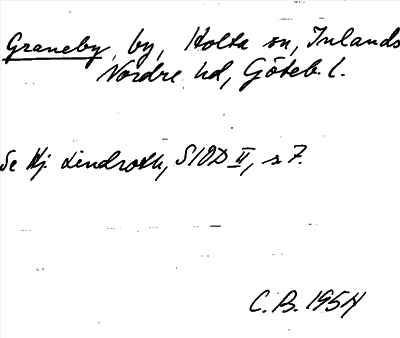 Graneby, by, Holta sn, Inlands
Nordre hd, Göteb. l.
Se Hj. Lindroth, SIOD II, s 7.
C. B. 1954